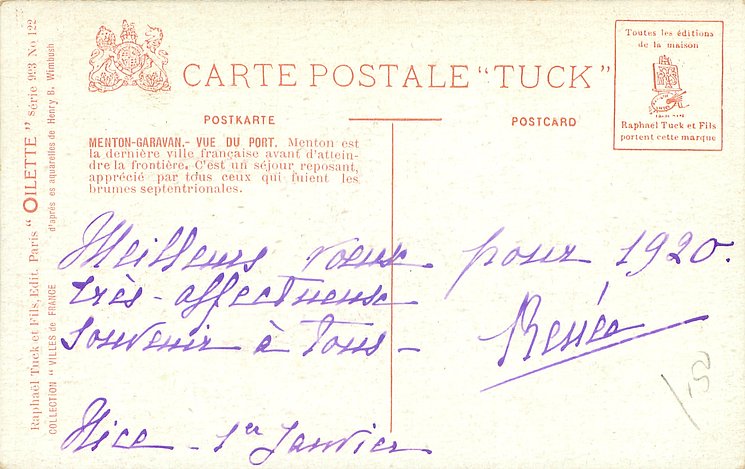 CARTE POSTALE "TUCK"
POSTKARTE
POSTCARD
Toutes les éditions
de la maison
Raphael Tuck et Fils
portent cette marque
MENTON-GARAVAN.- VUE DU PORT. Menton est
la dernière ville française avant d'attein-
dre la frontière. C'est un séjour reposant,
apprécié par tous ceux qui fuient les
brumes septentrionales.
Meilleurs vœux pour 1920.
très-affectueux
souvenir à tous -
Renée
Nice - 1er Janvier
Raphaël Tuck et Fils, Edit. Paris "OILETTE" Série 923 No 122
COLLECTION "VILLES de FRANCE d'après es aquarelles de Henry B. Wimbush